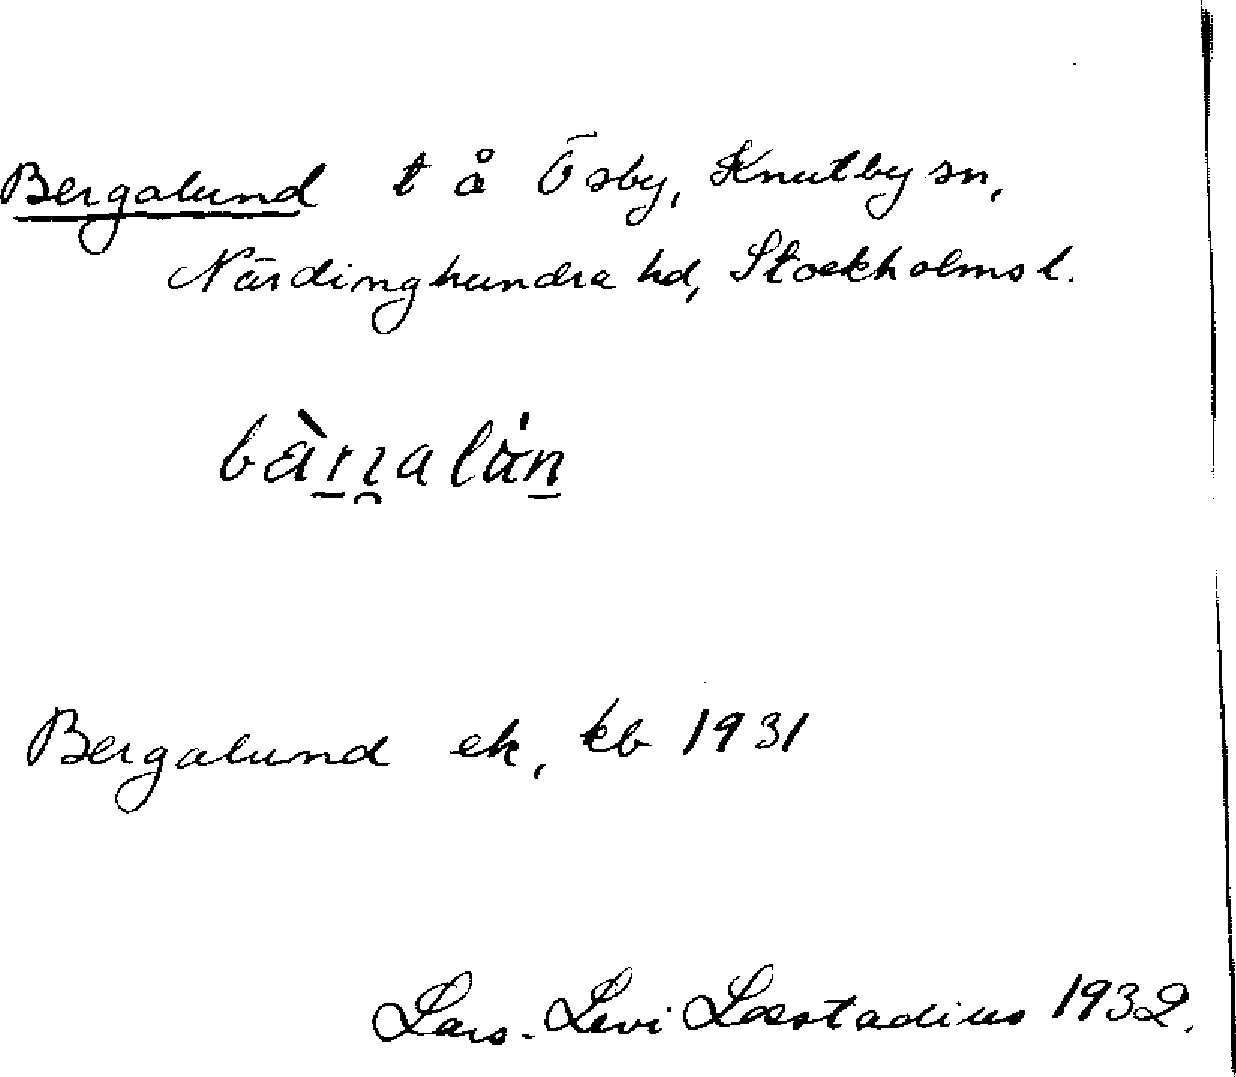 Bergalund t å Ösby, Knutby sn,
Närdinghundra hd, Stockholms l.
Bergalund ek, kb 1931
Lars-Levi Læstadius 1932.